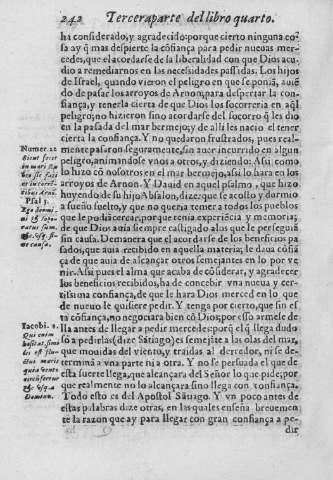 242 Terceraparte del libro quarto.
ha considerado, y agradecido: porque cierto ninguna co-
sa ay q̃ mas despierte la cõfiança para pedir nueuas mer-
cedes, que el acordarse de la liberalidad con que Dios acu-
dio a remediarnos en las necessidades passadas. Los hijos
de Israel, quando vieron el peligro en que se poniã, auiẽ
do de passar los arroyos de Arnon; para despertar la con-
fiança, y tenerla cierta de que Dios los socorreria en aq̃l
peligro; no hizieron sino acordarse del socorro q̃ les dio
en la passada del mar bermejo, y de alli les nacio el tener
cierta la confiança. Y no quedaron frustrados, pues real
mente passaron seguramente, sin auer incurrido en algun
peligro, animandose vnos a otros, y diziendo: Assi como
lo hizo cõ nosotros en el mar bermejo, assi lo hara en los
arroyos de Arnon. Y Dauid en aquel psalmo, que hizo
huyendo de su hijo Absalon, dize: que se acosto y durmio
a sueño suelto, y que no queria temer a todos los pueblos
que le podiã cercar; porque tenia experiẽcia y memoria;
de que Dios auia siempre castigado alos que le perseguiã
sin causa. De manera que el acordarse de los beneficios pa-
sados, que auia recebido en aquella materia; le daua cõfiã
ça de que auia de alcançar otros semejantes en lo por ve
nir. Assi pues el alma que acaba de cõsiderar, y agradecer
los beneficios recibidos, ha de concebir vna nueua y cer-
tissima confiança, de que le hara Dios merced en lo que
de nueuo le quisiere pedir. Y tenga por cierto, que sin es
ta cõfiança, no negociara bien cõ Dios; por esso armese de
lla antes de llegar a pedir mercedes: porq̃ el q̃ llega dudo
so a pedirlas (dize Sãtiago) es semejãte a las olas del mar,
que mouidas del viento, y traidas al derredor, ni se de-
termina a vna parte ni a otra. Y no se persuada el que de
esta suerte llega, que alcançara del Señor lo que pide; por
que realmente no lo alcançara sino llega con confiança.
Todo esto es del Apostol Sãtiago. Y vn poco antes de
estas palabras dize otras, en las quales enseña breuemen
te la razon que ay para llegar con gran confiança a pe-
dir
Numer. 21
Sicut fecit
in mari Ru
bro sic faci
et in torrẽ
tibus Arnõ.
Psal 3.
Ego dormi
ui & sopo-
ratus sum.
&c.
Iacobi. 1.
Qui enim
hæsitat simi
lis est flu-
ctui maris
qui a vento